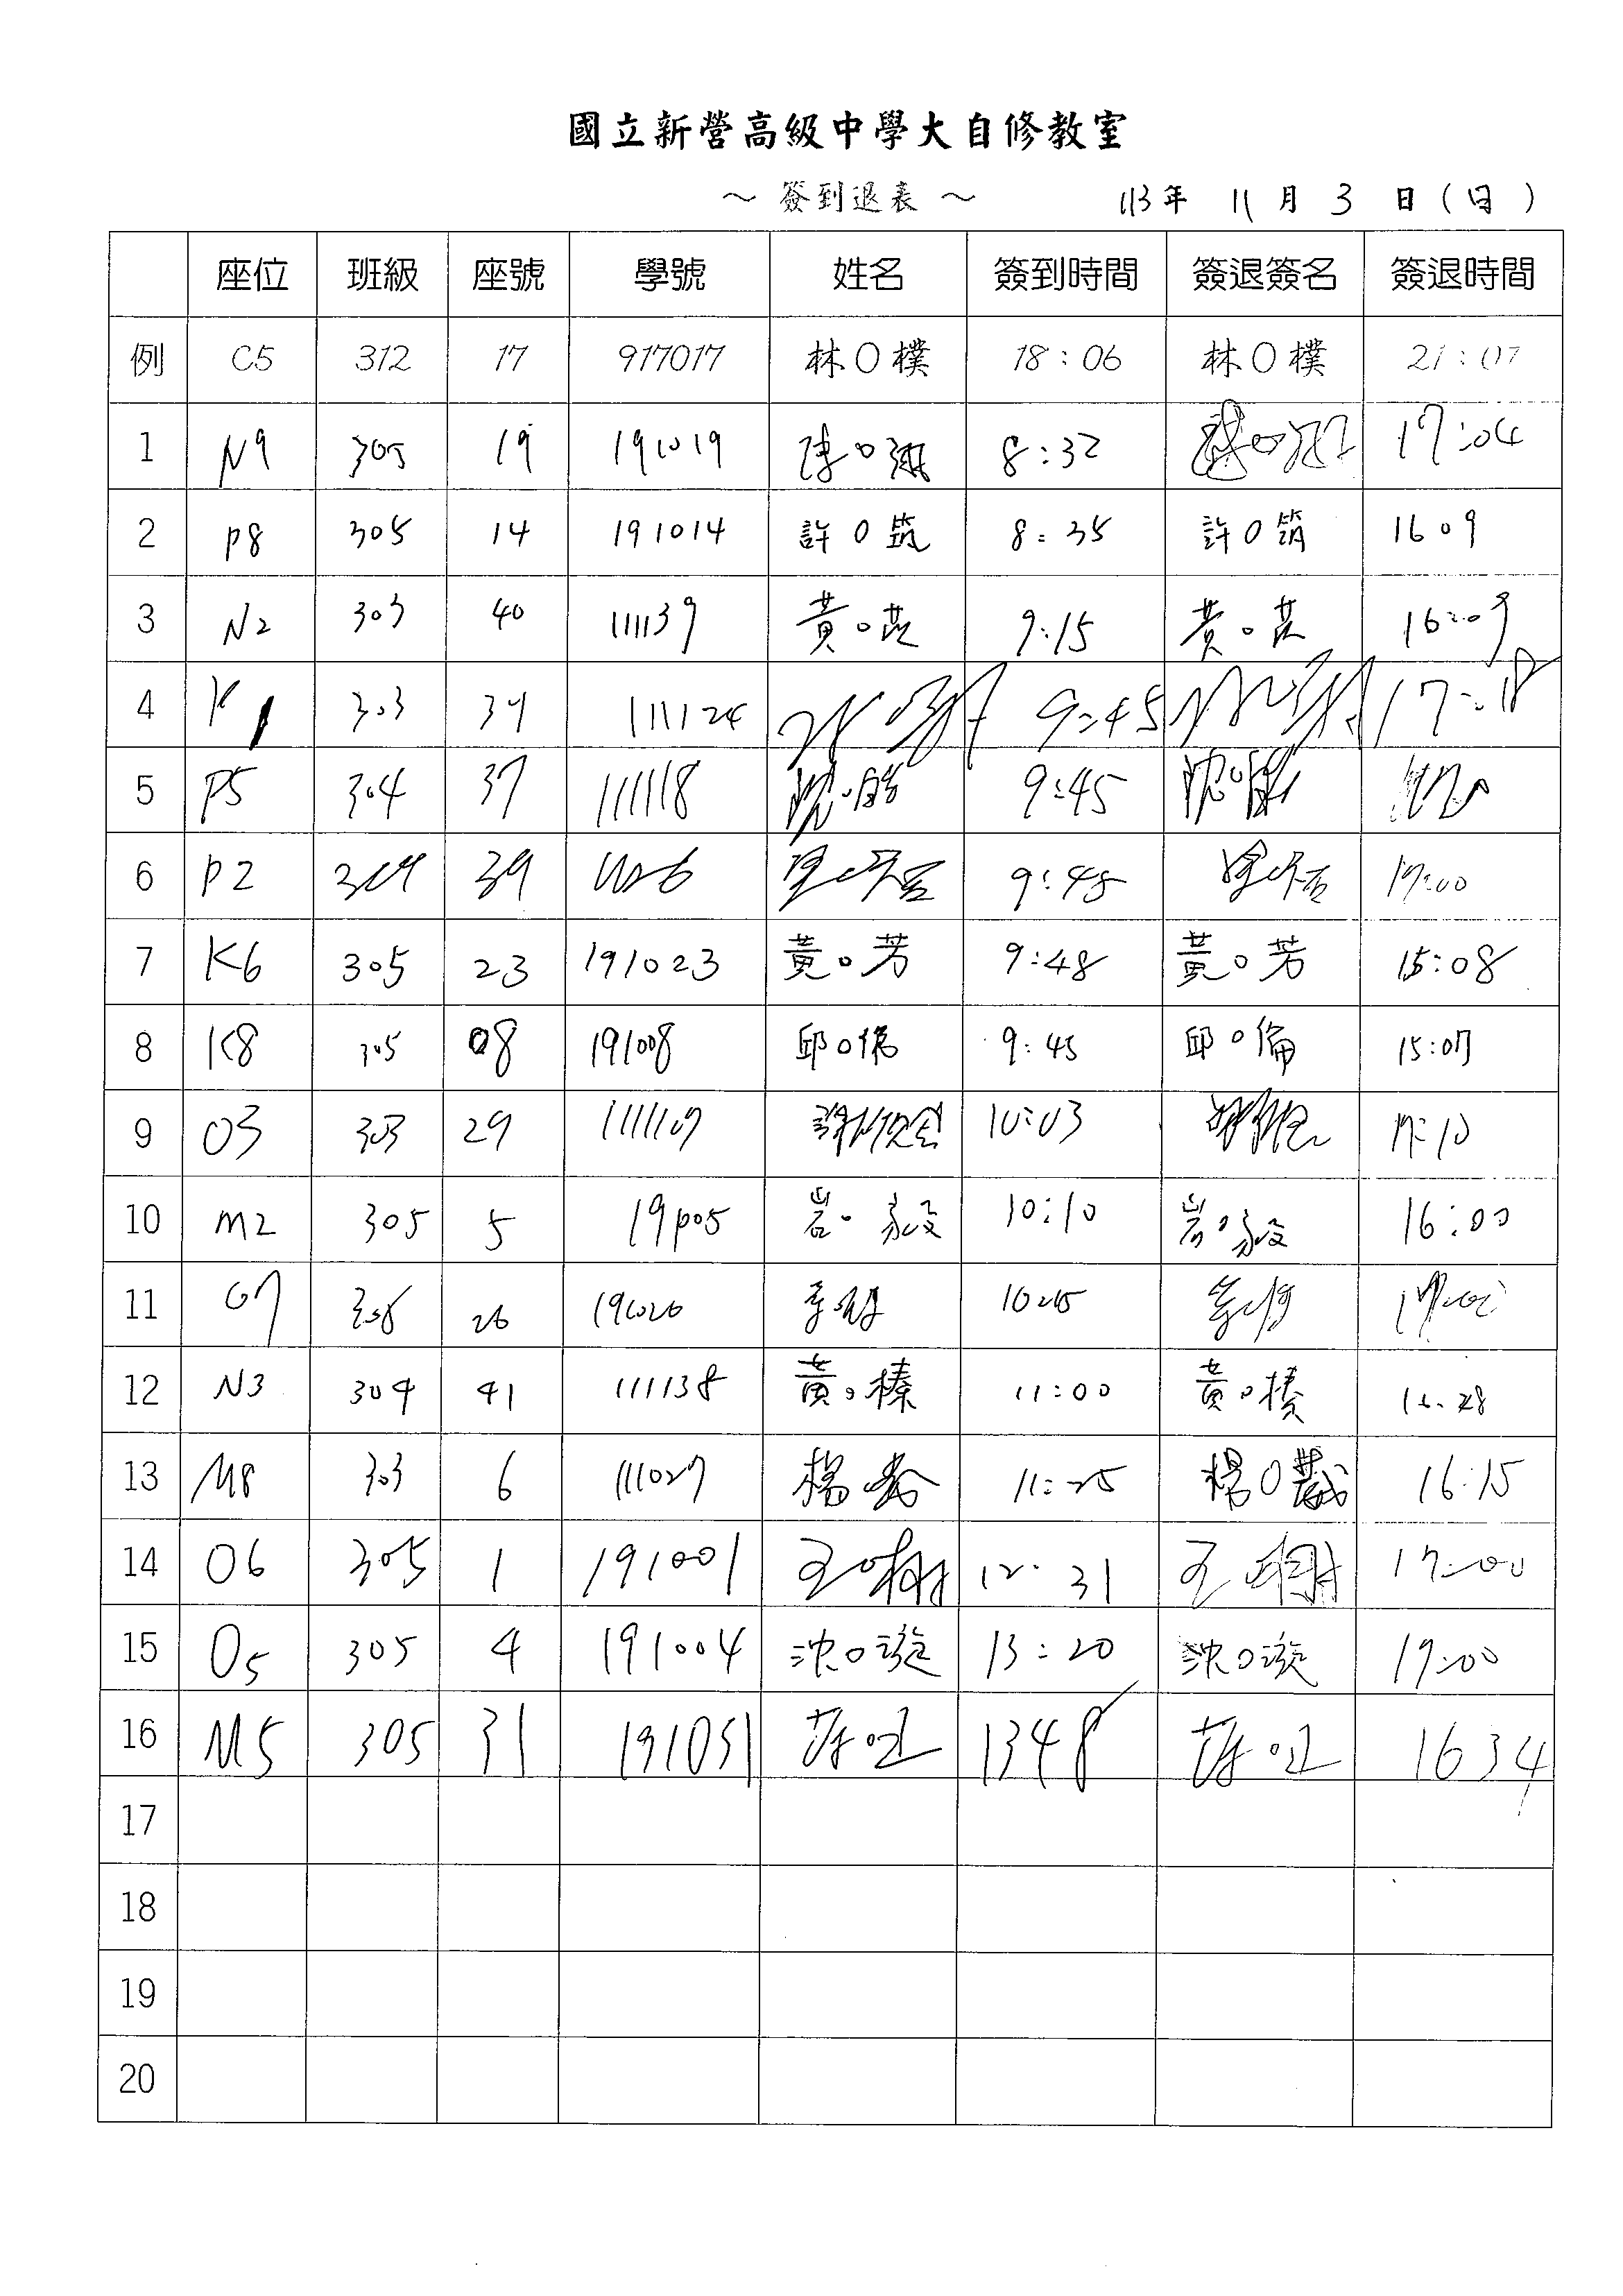 國立新營高級中學大自修教室
～ 簽到退表 ～ 113年 11月 3 日(日)
座位 班級 座號 學號 姓名 簽到時間 簽退簽名 簽退時間
例 C5 312 17 917017 林O樸 18:06 林O樸 21:07
1 N9 305 19 191019 陳O 8:32 17:04
2 P8 305 14 191014 許O筑 8:35 許O筑 1609
3 N2 303 40 111139 黃O芸 9:15 黃O芸 16:09
4 303 111124 9:45 17:18
5 P5 304 37 111118 沈O 9:45 沈O
6 P2 304 39 9:48 17:00
7 K6 305 23 191023 黃O芳 9:48 黃O芳 15:08
8 K8 305 08 191008 邱O倫 9:45 邱O倫 15:07
9 O3 303 29 111109 10:03 17:10
10 M2 305 5 191005 岩O毅 10:10 岩O毅 16:00
11 O7 305 26 191026 李O 10:45 李O
12 N3 304 41 111138 黃O榛 11:00 黃O榛 16:28
13 M8 303 6 111027 楊 11:25 楊O 16:15
14 O6 305 1 191001 王O 12:31 王O 17:00
15 O5 305 4 191004 沈O漩 13:20 沈O漩 17:00
16 M5 305 31 191031 1348 1634
17
18
19
20